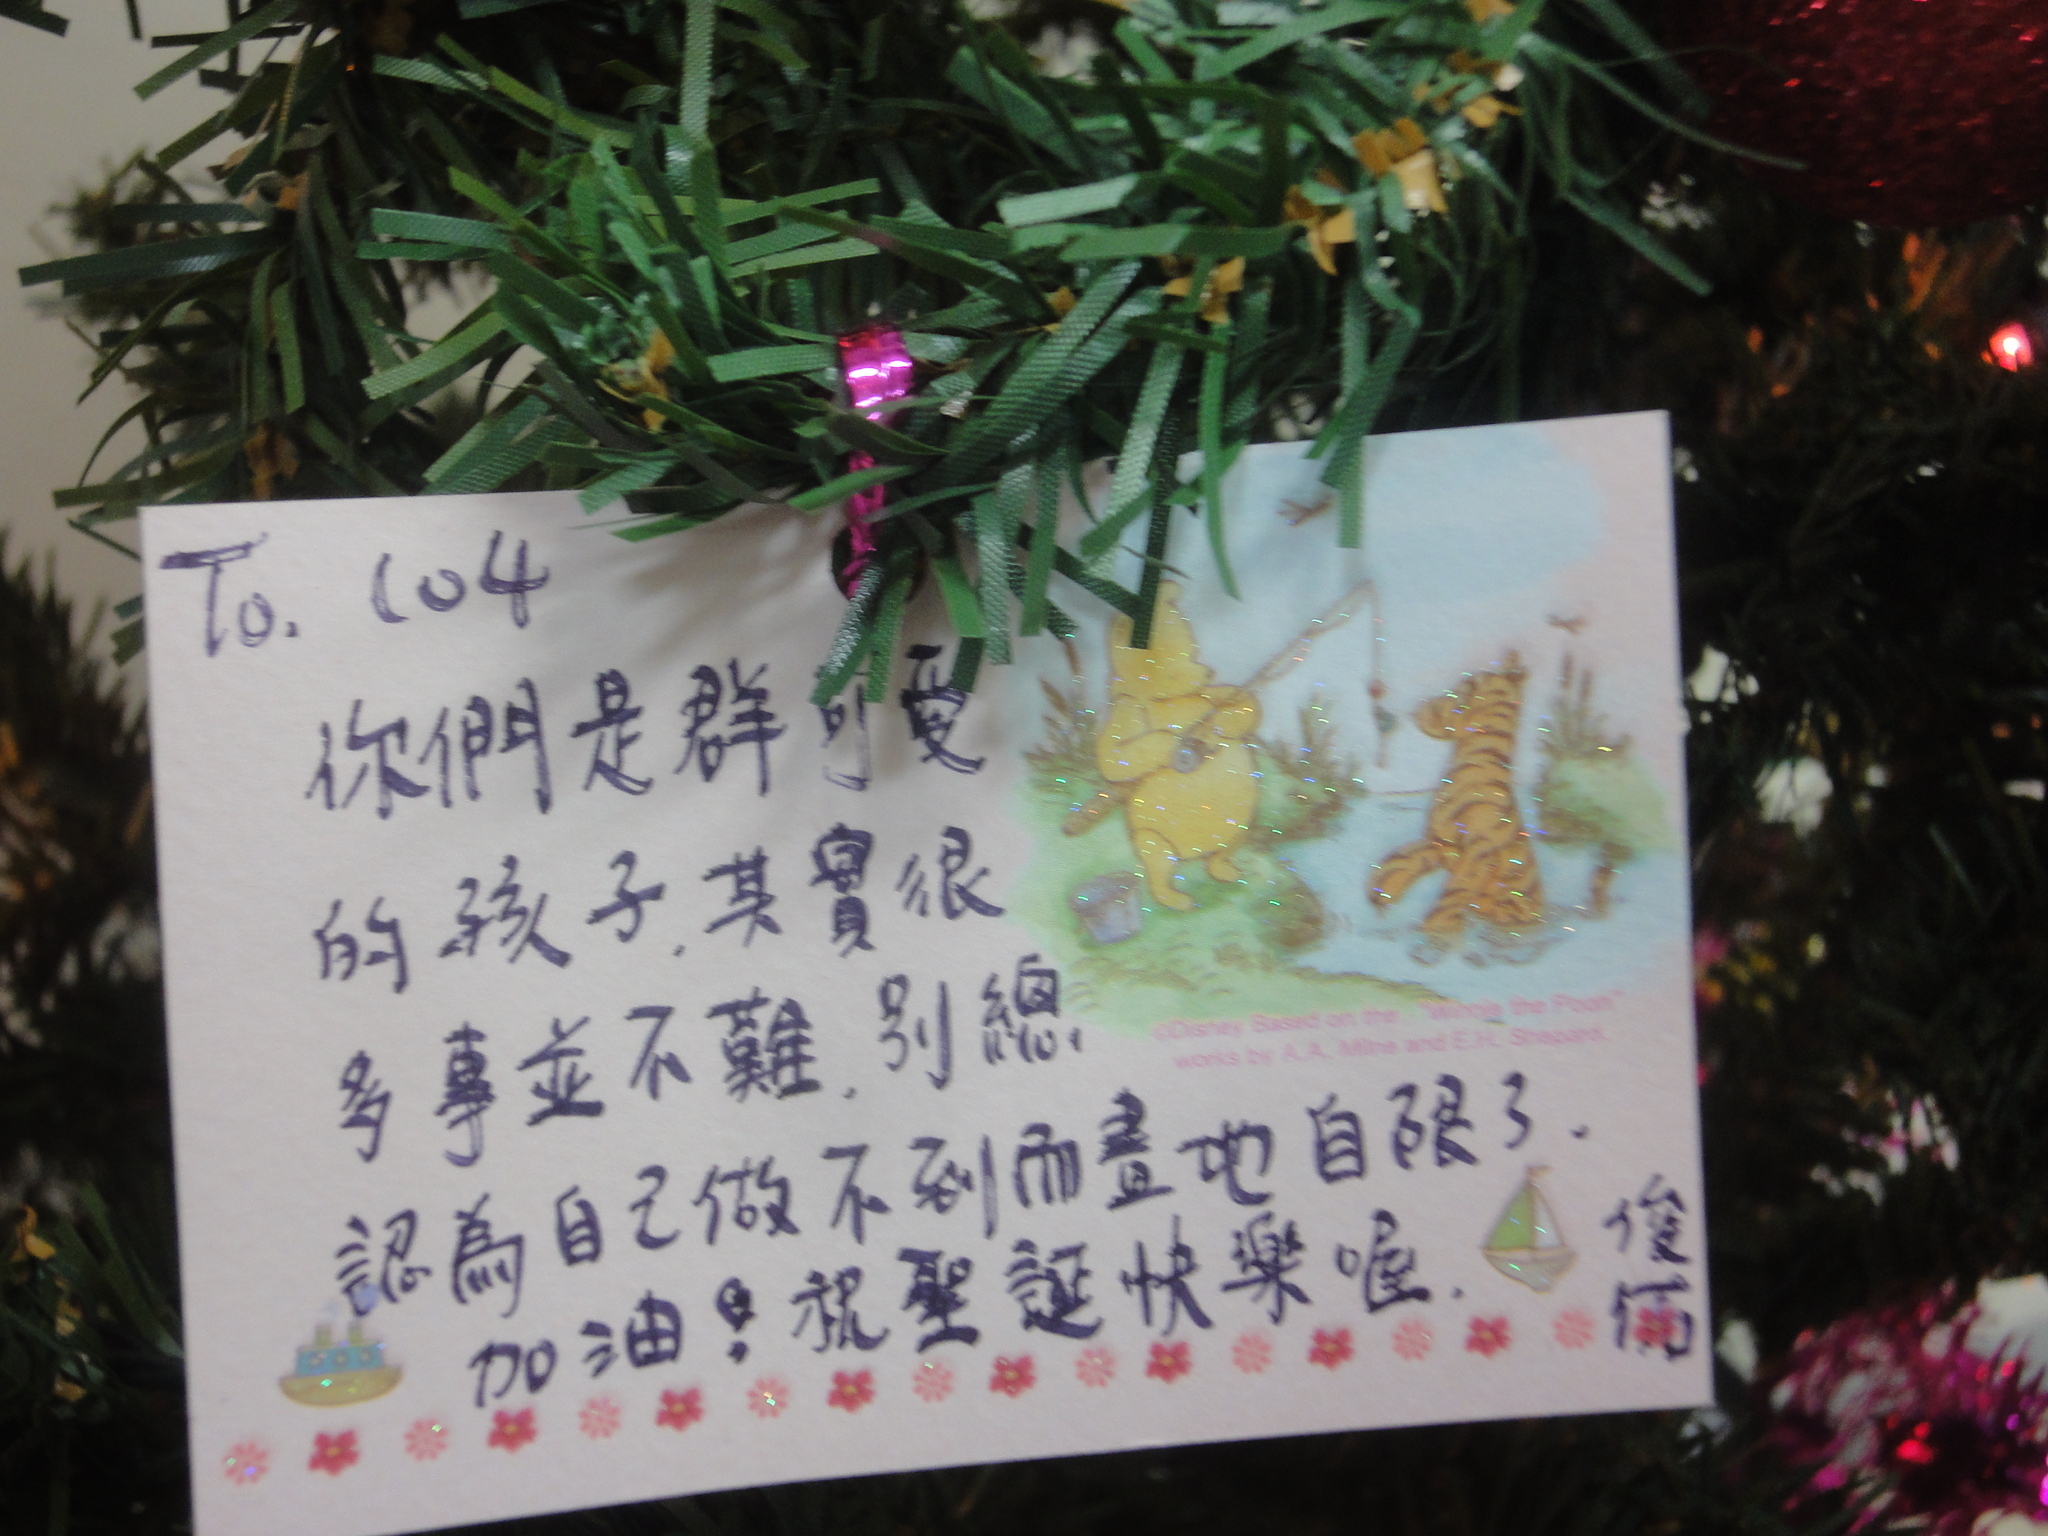 To. 104
你們是群可愛
的孩子,其實很
多事並不難,別總
認為自己做不到而畫地自限了.
加油!祝聖誕快樂喔.
俊
©Disney Based on the "Winnie the Pooh"
works by A.A. Milne and E.H. Shepard.